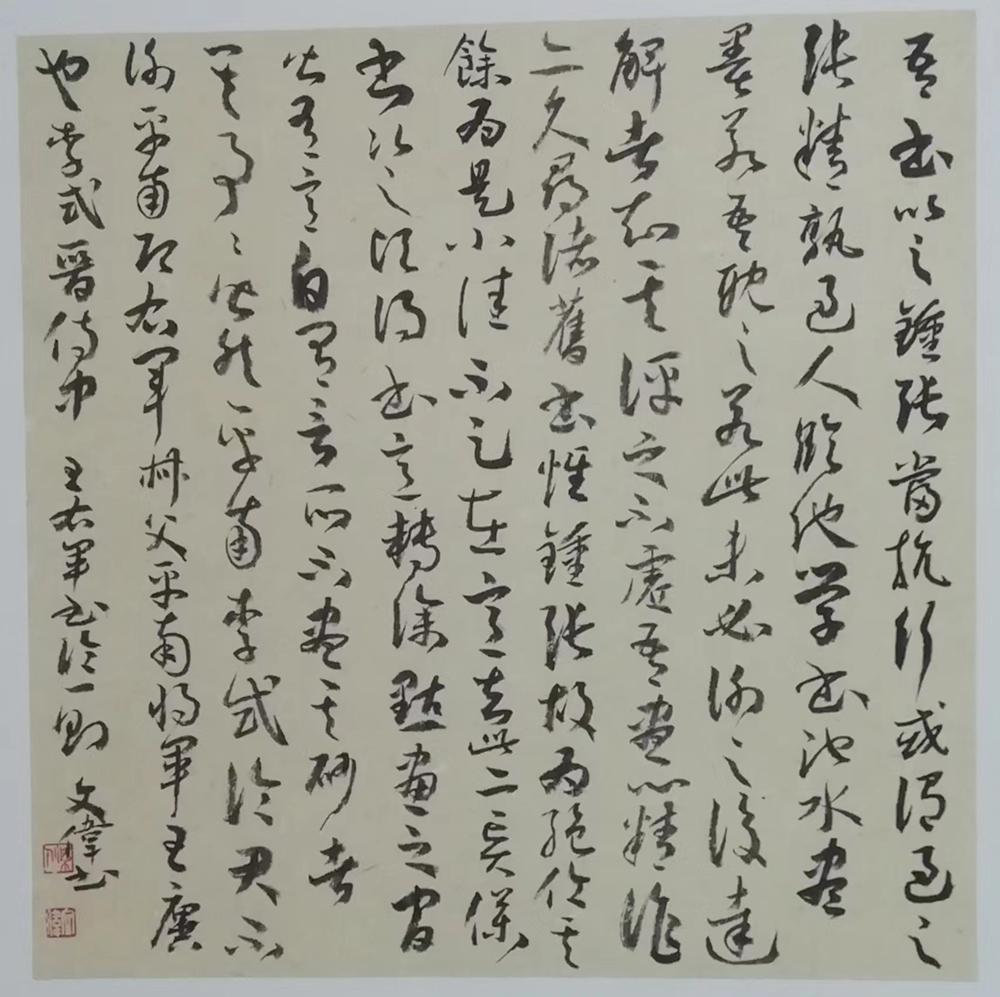 吾書比之鍾張當抗行或謂過之
張精熟過人臨池學書池水盡
墨若吾耽之若此未必謝之後達
解者知其評之不虛吾盡心精作
亦久尋諸舊書惟鍾張故為絕倫其
餘為是小佳不足在意去此二賢僕
書次之須得書意轉深點畫之間
皆有意自有言所不盡其妙者
其事々皆然平南李式論君不
謝平南即右軍叔父平南將軍王廙
也李式晉侍中 王右軍書論一則 文偉書